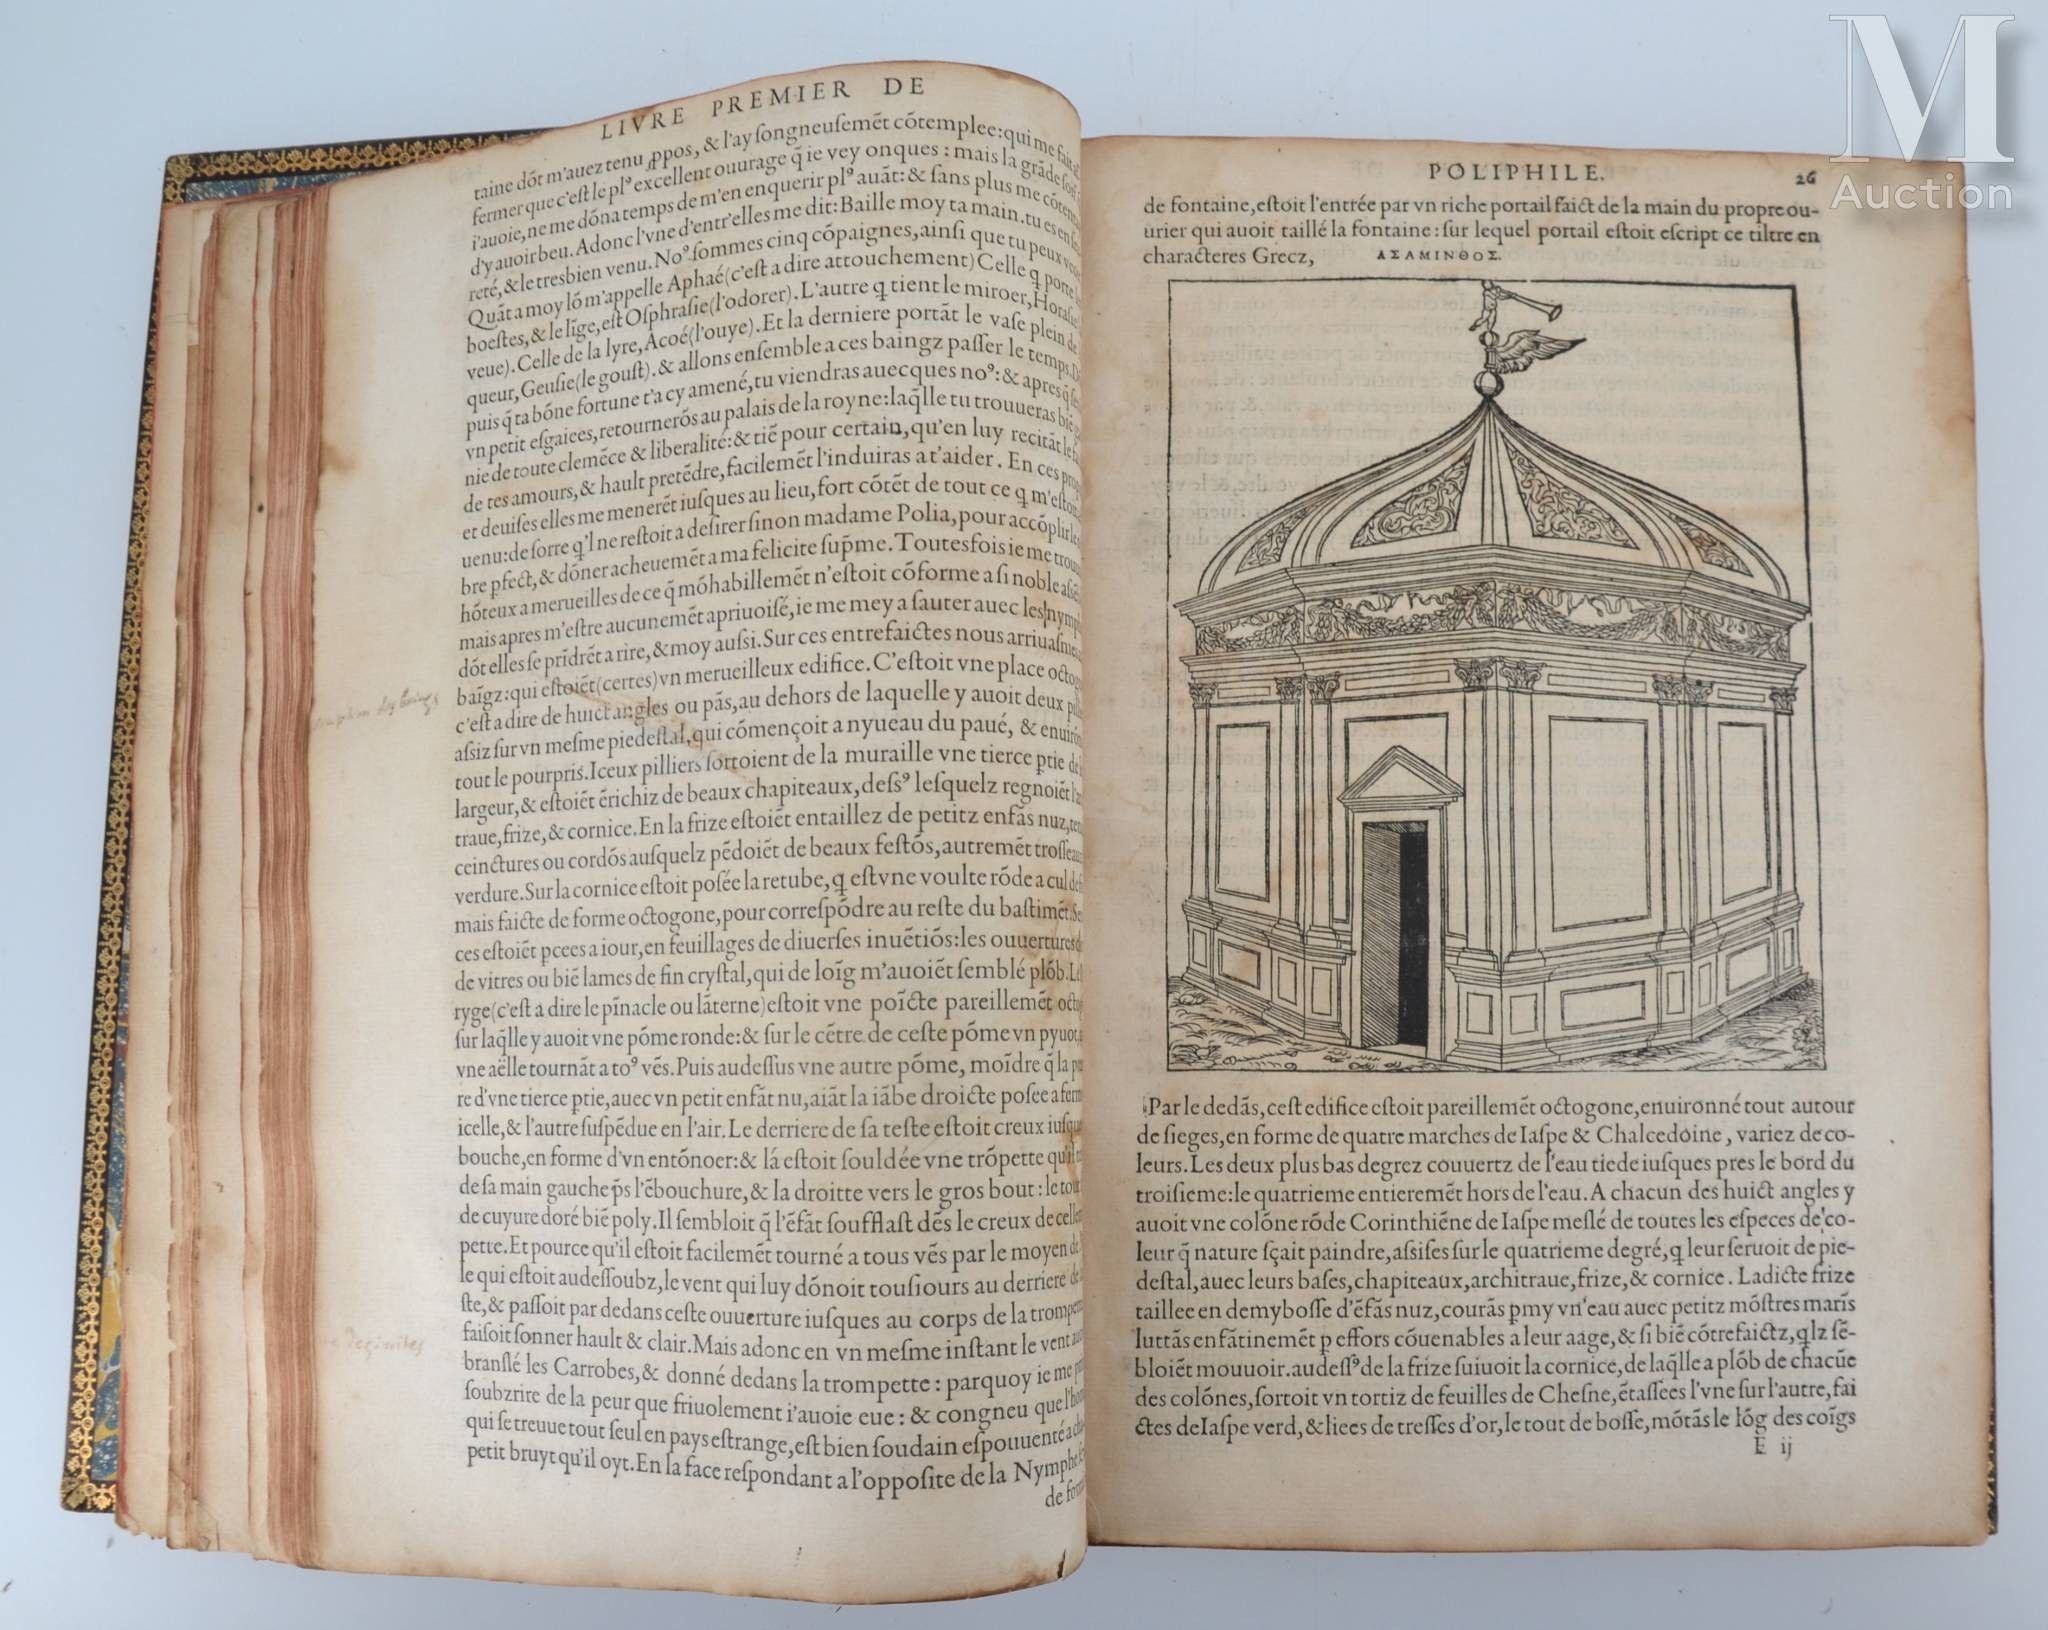 LIVRE PREMIER DE
taine dōt m'auez tenu ꝓpos, & l'ay ſongneuſemēt cōtemplee: qui me fait
fermer que c'eſt le plꝰ excellent ouurage q̄ ie vey onques : mais la grāde ſoif
i'auoie, ne me dōna temps de m'en enquerir plꝰ auāt: & ſans plus me cōtenir
d'y auoir beu. Adonc l'vne d'entr'elles me dit: Baille moy ta main. tu es en
reté, & le tresbien venu. Noꝰ ſommes cinq cōpaignes, ainſi que tu peux
Quāt a moy lō m'appelle Aphaé (c'eſt a dire attouchement) Celle q porte
boeſtes, & le līge, eſt Oſphraſie (l'odorer). L'autre q tient le miroer, Horaſie
veue). Celle de la lyre, Acoé (l'ouye). Et la derniere portāt le vaſe plein de
queur, Geuſie (le gouſt). & allons enſemble a ces baingz paſſer le temps.
puis q̄ ta bōne fortune t'a cy amené, tu viendras auecques noꝰ: & apres q̄
vn petit eſgaiees, retournerōs au palais de la royne: laq̄lle tu trouueras biē
nie de toute clemēce & liberalité: & tiē pour certain, qu'en luy recitāt le
de tes amours, & hault pretēdre, facilemēt l'induiras a t'aider. En ces
et deuiſes elles me menerēt iuſques au lieu, fort cōtēt de tout ce q m'eſtoit
uenu: de ſorte q'l ne reſtoit a deſirer ſinon madame Polia, pour accōplir
bre pfect, & dōner acheuemēt a ma felicite ſup̄me. Toutesfois ie me
hōteux a merueilles de ce q̄ mō habillemēt n'eſtoit cōforme a ſi noble
mais apres m'eſtre aucunemēt apriuoiſé, ie me mey a ſauter auec les
dōt elles ſe prīdrēt a rire, & moy auſsi. Sur ces entrefaictes nous arriuaſmes
baīgz: qui eſtoiēt (certes) vn merueilleux edifice. C'eſtoit vne place
c'eſt a dire de huict angles ou pās, au dehors de laquelle y auoit deux
aſsiz ſur vn meſme piedeſtal, qui cōmençoit a nyueau du paué, &
tout le pourpris. Iceux pilliers ſortoient de la muraille vne tierce ptie de
largeur, & eſtoiēt ērichiz de beaux chapiteaux, deſſꝰ leſquelz regnoiēt
traue, frize, & cornice. En la frize eſtoiēt entaillez de petitz enfās nuz,
ceinctures ou cordōs auſquelz pēdoiēt de beaux feſtōs, autremēt
verdure. Sur la cornice eſtoit poſée la retube, q eſt vne voulte rōde a cul
mais faicte de forme octogone, pour correſpōdre au reſte du baſtimēt.
ces eſtoiēt pcees a iour, en feuillages de diuerſes inuētiōs: les ouuertures
de vitres ou biē lames de fin cryſtal, qui de loīg m'auoiēt ſemblé plōb.
ryge (c'eſt a dire le pīnacle ou lāterne) eſtoit vne poīcte pareillemēt
ſur laq̄lle y auoit vne pōme ronde: & ſur le cētre de ceſte pōme vn pyuot,
vne aëlle tournāt a toꝰ vēs. Puis audeſſus vne autre pōme, moīdre q̄ la
re d'vne tierce ptie, auec vn petit enfāt nu, aiāt la iābe droicte poſee a
icelle, & l'autre ſuſpēdue en l'air. Le derriere de ſa teſte eſtoit creux
bouche, en forme d'vn entōnoer: & lá eſtoit ſouldée vne trōpette
de ſa main gauche p̄s l'ēbouchure, & la droitte vers le gros bout: le tout
de cuyure doré biē poly. Il ſembloit q̄ l'ēfāt ſoufflaſt dēs le creux de
pette. Et pource qu'il eſtoit facilemēt tourné a tous vēs par le moyen de
le qui eſtoit audeſſoubz, le vent qui luy dōnoit touſiours au derriere de
ſte, & paſſoit par dedans ceſte ouuerture iuſques au corps de la
faiſoit ſonner hault & clair. Mais adonc en vn meſme inſtant le vent
branſlé les Carrobes, & donné dedans la trompette: parquoy ie me
ſoubzrire de la peur que friuolement i'auoie eue: & congneu que
qui ſe treuue tout ſeul en pays eſtrange, eſt bien ſoudain eſpouuenté
petit bruyt qu'il oyt. En la face reſpondant a l'oppoſite de la Nymphe
POLIPHILE. 26
de fontaine, eſtoit l'entrée par vn riche portail faict de la main du propre ou-
urier qui auoit taillé la fontaine: ſur lequel portail eſtoit eſcript ce tiltre en
characteres Grecz, ΑΣΑΜΙΝΘΟΣ.
Par le dedās, ceſt edifice eſtoit pareillemēt octogone, enuironné tout autour
de ſieges, en forme de quatre marches de Iaſpe & Chalcedoine, variez de co-
leurs. Les deux plus bas degrez couuertz de l'eau tiede iuſques pres le bord du
troiſieme: le quatrieme entieremēt hors de l'eau. A chacun des huict angles y
auoit vne colōne rōde Corinthiēne de Iaſpe meſlé de toutes les eſpeces de co-
leur q̄ nature ſçait paindre, aſsiſes ſur le quatrieme degré, q leur ſeruoit de pie-
deſtal, auec leurs baſes, chapiteaux, architraue, frize, & cornice. Ladicte frize
taillee en demyboſſe d'ēfās nuz, courās pmy vn'eau auec petitz mōſtres marīs
luttās enfātinemēt p effors cōuenables a leur aage, & ſi biē cōtrefaictz, q̄lz ſē-
bloiēt mouuoir. audeſſꝰ de la frize ſuiuoit la cornice, de laq̄lle a plōb de chacūe
des colōnes, ſortoit vn tortiz de feuilles de Cheſne, ētaſſées l'vne ſur l'autre, fai
ctes de Iaſpe verd, & liees de treſſes d'or, le tout de boſſe, mōtās le lōg des coīgs
E ij
M
Auction